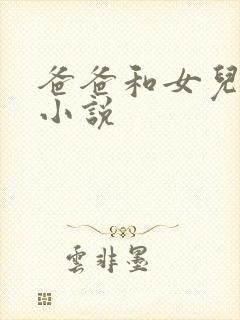 爸爸和女兒
小說
雲非墨